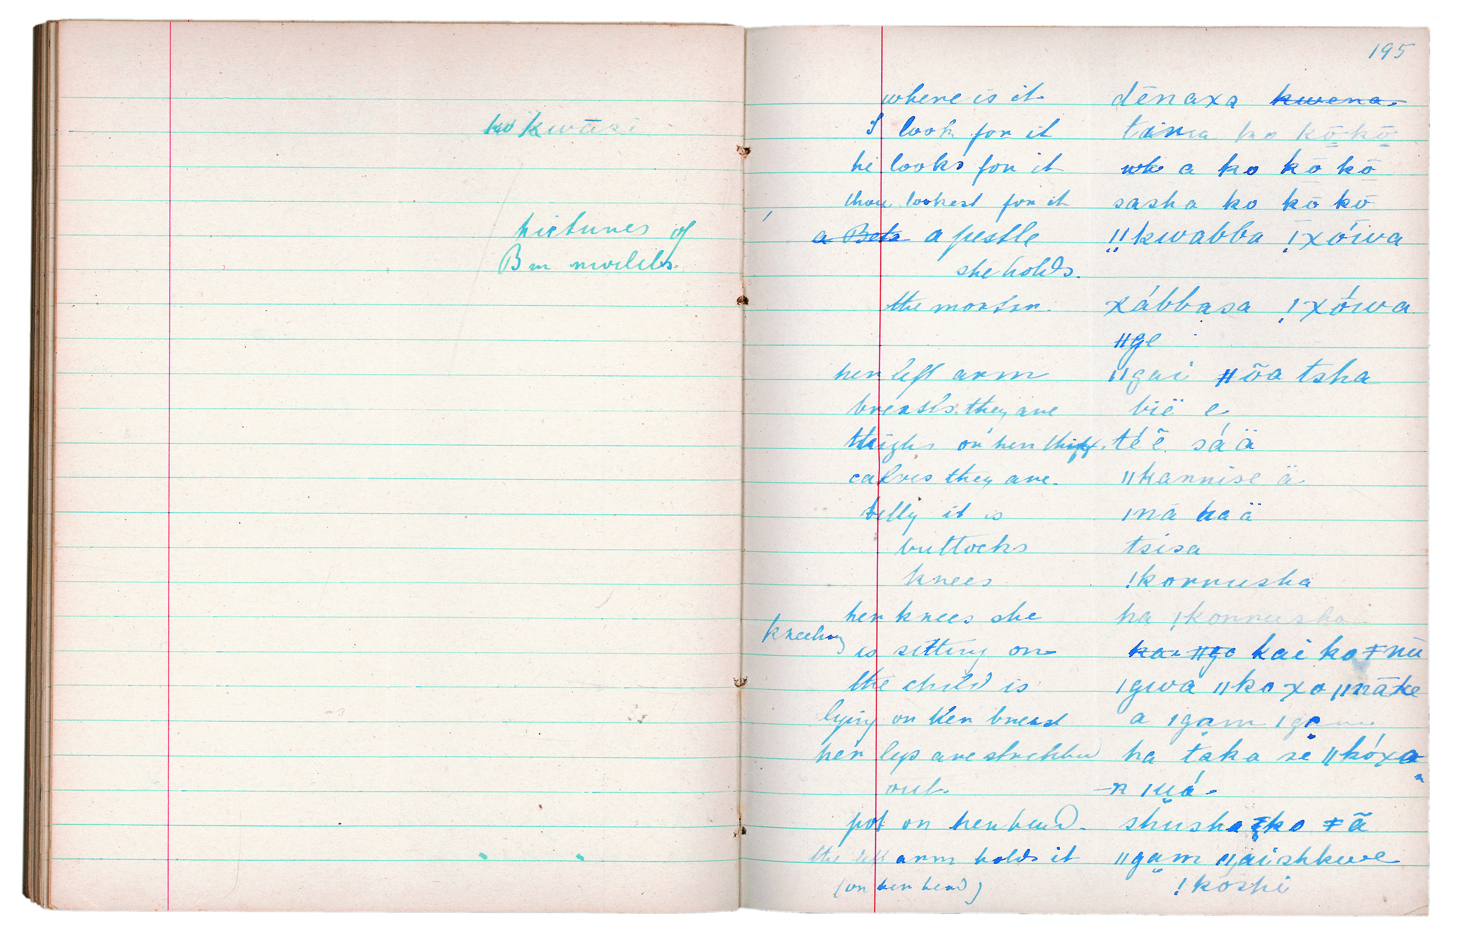 kwāsi
pictures of
Bm models.
195
where is it dēnaxa kwena
I look for it tima ko kō kō
he looks for it a ko kō kō
thou lookest for it sasha ko kō kō
a pestle ǁkwabba ǃxówa
she holds.
the mortar xábbasa ǃxówa
ǁge
her left arm ǁgai ǁõa tsha
breasts they are bië e
thighs on her téẽ sáä
calves they are ǁkannise ä
belly it is ǀná kaä
buttocks tsisa
knees ǃkonnusha
her knees she ha ǃkonnusha
kneeling
is sitting on kai ko ǂnū
the child is ǀgwa ǁko xo ǁnāke
lying on her breast a ǀgam
her legs are stretched ha tska se ǁkóxa
out. ǀuá
pot on her head. shusha ko ǂã
the left arm holds it ǁgam ǁaishkwe
(on her head) ǃkoshi